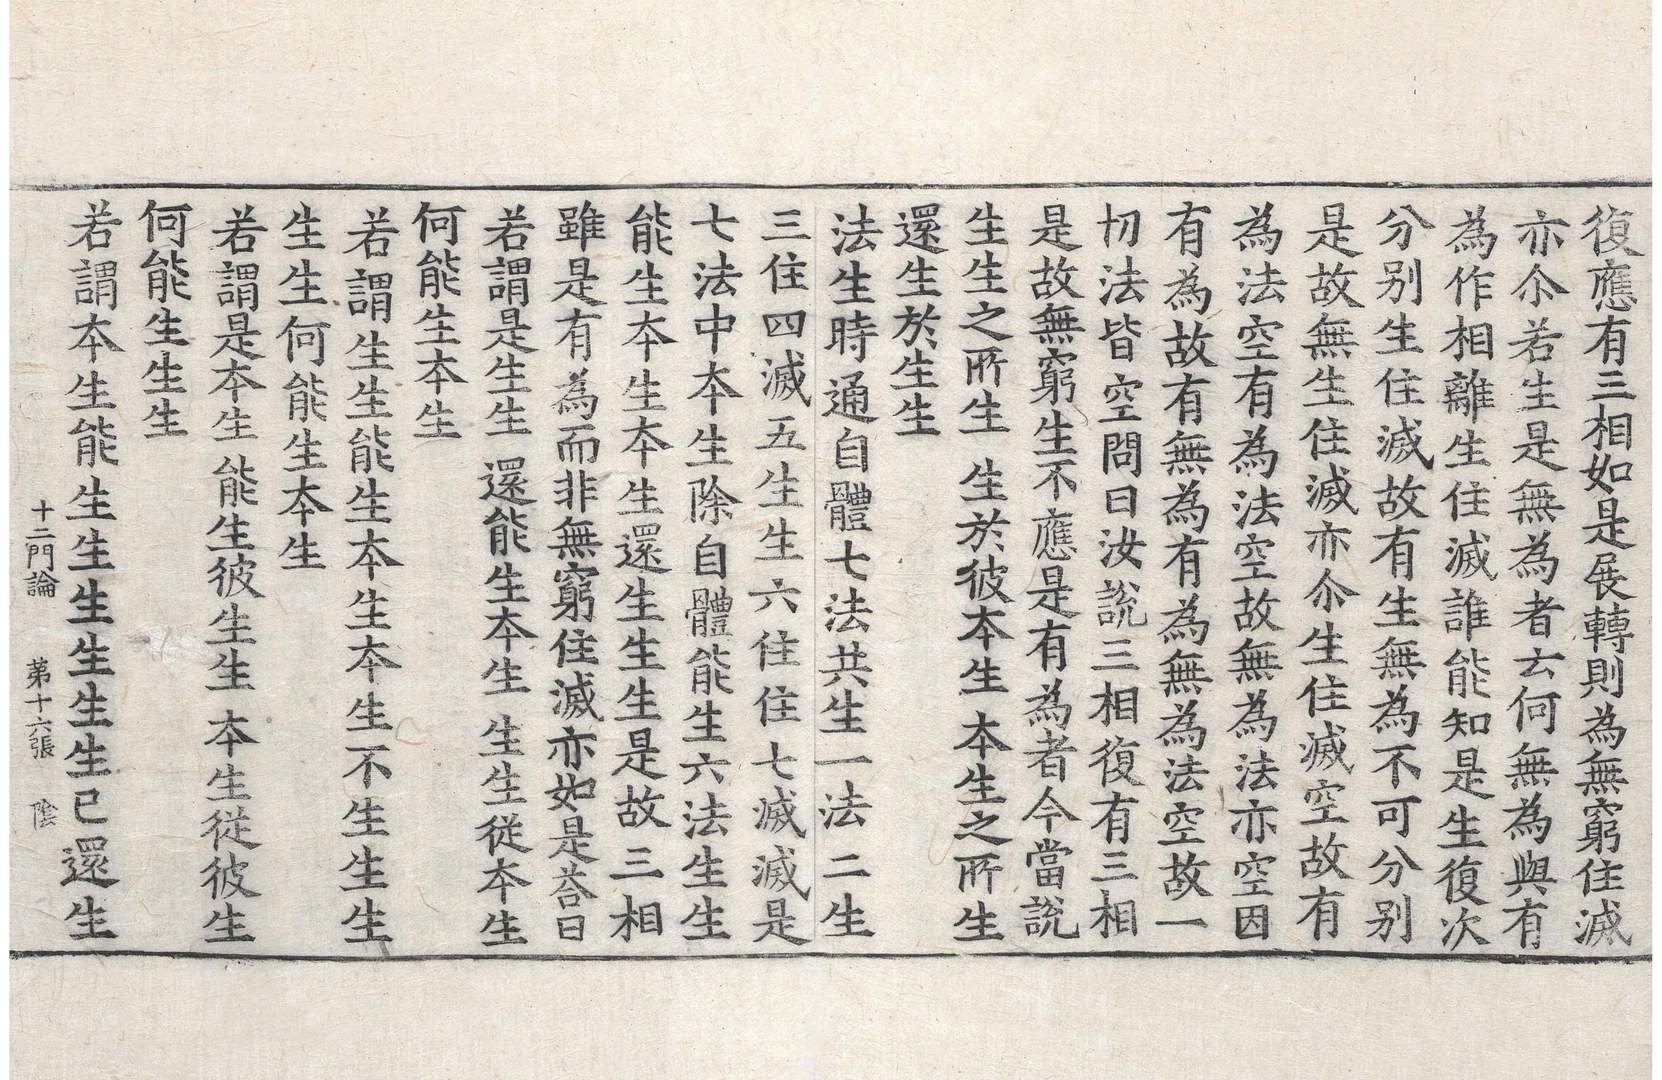 復應有三相如是展轉則為無窮住滅
亦尒若生是無為者云何無為與有
為作相離生住滅誰能知是生復次
分别生住滅故有生無為不可分别
是故無生住滅亦尒生住滅空故有
為法空有為法空故無為法亦空因
有為故有無為有為無為法空故一
切法皆空問曰汝說三相復有三相
是故無窮生不應是有為者今當說
生生之所生 生於彼本生 本生之所生
還生於生生
法生時通自體七法共生一法 二生
三住四滅五生生六住住七滅滅是
七法中本生除自體能生六法生生
能生本生本生還生生生是故三相
雖是有為而非無窮住滅亦如是荅曰
若謂是生生 還能生本生 生生從本生
何能生本生
若謂生生能生本生本生不生生生
生生何能生本生
若謂是本生 能生彼生生 本生從彼生
何能生生生
若謂本生能生生生生生生已還生
十二門論 第十六張 陰